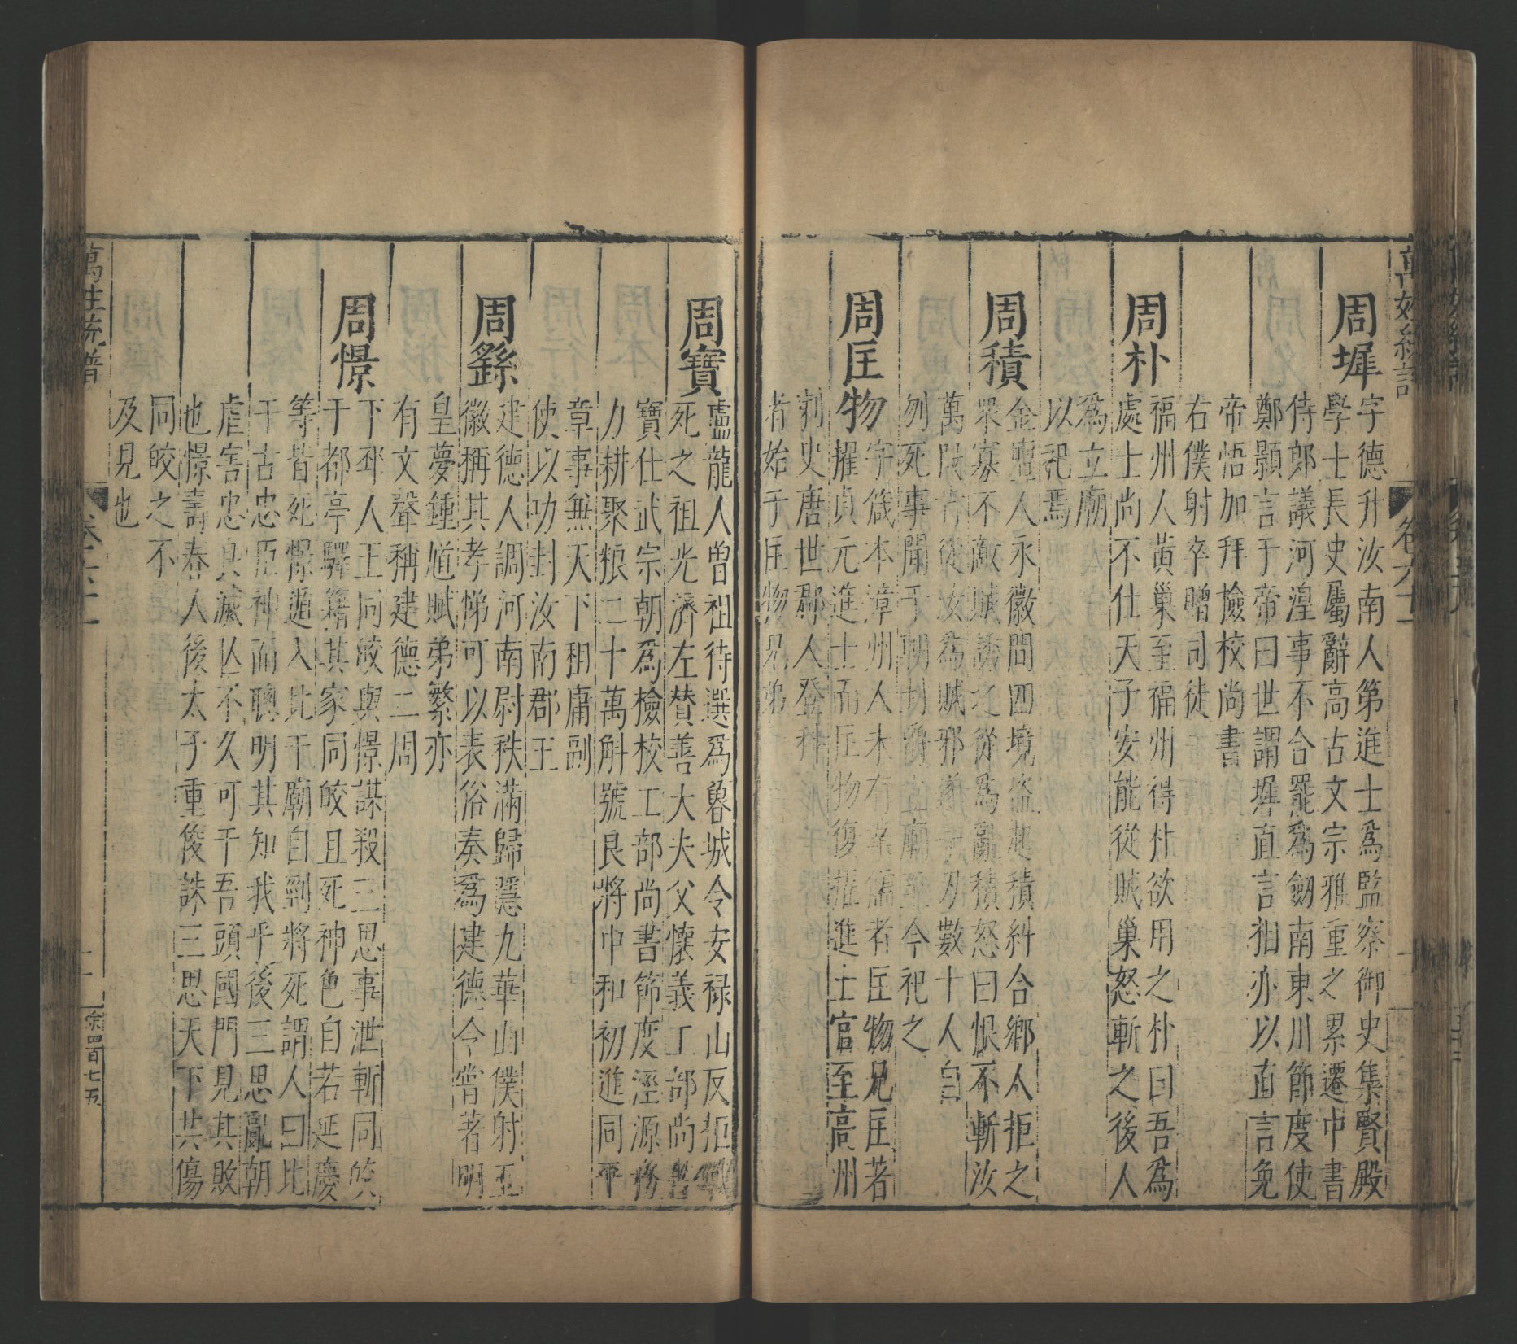 萬姓統譜
卷六十一
周墀
字德升汝南人第進士爲監察御史集賢殿
學士長史屬辭高古文宗雅重之累遷中書
侍郎議河湟事不合罷爲劒南東川節度使
鄭顥言于帝曰世謂墀直言相亦以直言免
帝悟加拜檢校尚書
右僕射卒贈司徒
周朴
福州人黃巢至福州得朴欲用之朴曰吾爲
處士尚不仕天子安能從賊巢怒斬之後人
爲立廟
以祀焉
周積
金壇人永徽間四境盜起積糾合鄉人拒之
衆寡不敵賊誘之從爲亂積怒曰恨不斬汝
萬段肯從汝爲賊邪遂手刃數十人自
列死事聞于朝封爵立廟至今祀之
周匡物
字箴本漳州人未有業儒者匡物兄匡著
擢貞元進士而匡物復擢進士官至高州
刺史唐世郡人登科
者始于匡物兄弟
周寶
盧龍人曾祖待選爲魯城令安禄山反拒戰
死之祖光濟左賛善大夫父懷義工部尚書
寶仕武宗朝爲檢校工部尚書節度涇源務
力耕聚粮二十萬斛號良將中和初進同平
章事無天下租庸副
使以功封汝南郡王
周繇
建德人調河南尉秩滿歸隱九華山僕射王
徽稱其孝悌可以表俗奏爲建德令嘗著明
皇夢鍾馗賦弟繁亦
有文聲稱建德二周
周憬
下邳人王同皎與憬謀殺三思事泄斬同皎
于都亭驛籍其家同皎且死神色自若延慶
等皆死憬遁入比干廟自剄將死謂人曰比
干古忠臣神而聰明其知我乎後三思亂朝
虐害忠良滅亾不久可干吾頭國門見其敗
也憬壽春人後太子重俊誅三思天下共傷
同皎之不
及見也
萬姓統譜
卷六十一